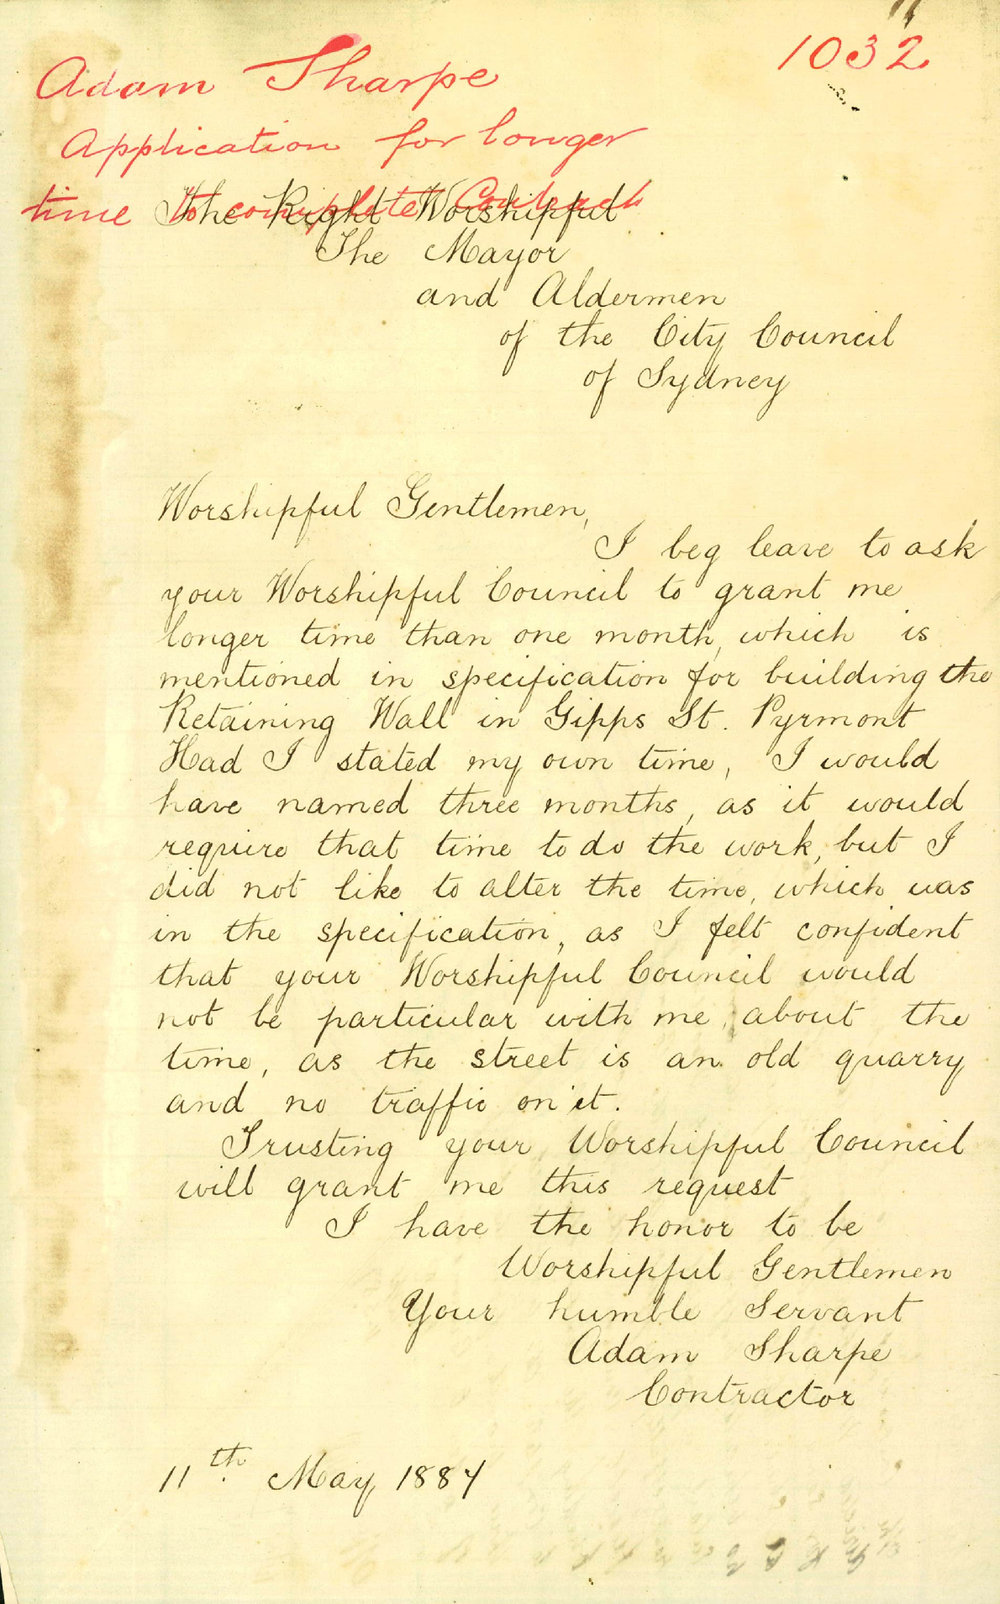 1032
Adam Sharpe
Application for longer
time to complete Contract
The Right Worshipful
The Mayor
and Aldermen
of the City Council
of Sydney
Worshipful Gentlemen,
I beg leave to ask
your Worshipful Council to grant me
longer time than one month, which is
mentioned in specification for building the
Retaining Wall in Gipps St. Pyrmont
Had I stated my own time, I would
have named three months, as it would
require that time to do the work, but I
did not like to alter the time, which was
in the specification, as I felt confident
that your Worshipful Council would
not be particular with me, about the
time, as the street is an old quarry
and no traffic on it.
Trusting your Worshipful Council
will grant me this request
I have the honor to be
Worshipful Gentlemen
Your humble Servant
Adam Sharpe
Contractor
11th May 1884